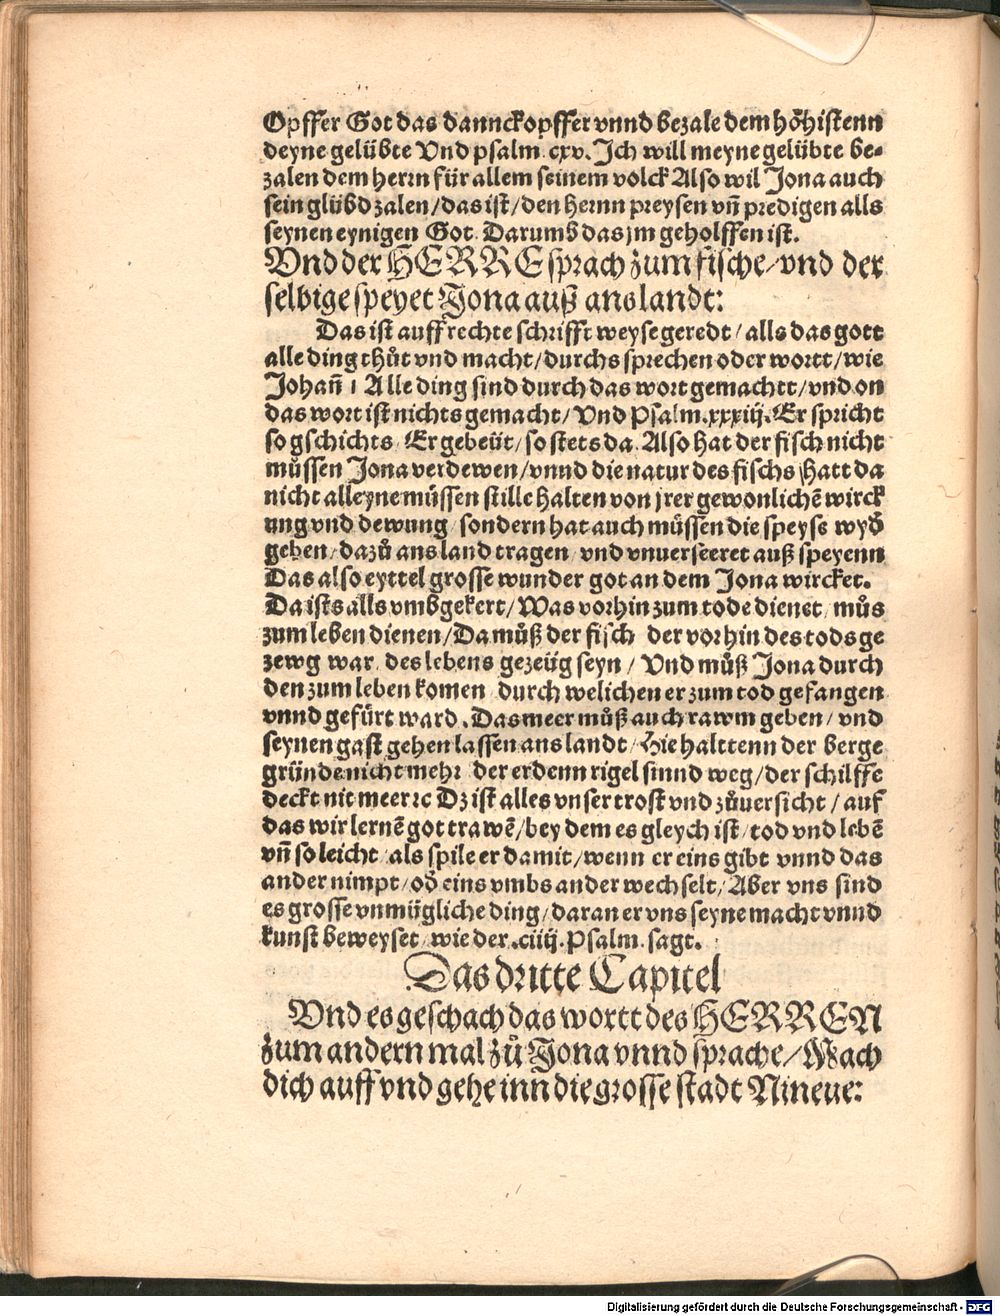 Opffer Got das dannckopffer vnnd bezale dem hoͤhistenn
deyne gelübte Vnd psalm. cxv. Ich will meyne gelübte be-
zalen dem herrn für allem seinem volck Also wil Jona auch
sein glübd zalen/das ist/den hernn preysen vn̄ predigen alls
seynen eynigen Got. Darumb das jm geholffen ist.
Vnd der HERRE sprach zum fische/vnd der
selbige speyet Jona auß ans landt:
Das ist auff rechte schrifft weyse geredt/alls das gott
alle ding thůt vnd macht/durchs sprechen oder wortt/wie
Johan̄ 1 Alle ding sind durch das wort gemachtt/vnd on
das wort ist nichts gemacht/Vnd Psalm.xxxiij.Er spricht
so gschichts/Er gebeüt/so stets da. Also hat der fisch nicht
müssen Jona verdewen/vnnd die natur des fischs hatt da
nicht alleyne müssen stille halten von jrer gewonlichē wirck
ung vnd dewung/sondern hat auch müssen die speyse wyd̄
geben/dazů ans land tragen/vnd vnuerseeret auß speyenn
Das also eyttel grosse wunder got an dem Jona wircket.
Da ists alls vmbgekert/Was vorhin zum tode dienet/můs
zum leben dienen/Da můß der fisch der vorhin des tods ge
zewg war/des lebens gezeüg seyn/Vnd můß Jona durch
den zum leben komen/durch welichen er zum tod gefangen
vnnd gefürt ward. Das meer můß auch rawm geben/vnd
seynen gast gehen lassen ans landt/Hie halttenn der berge
gründe nicht mehr der erdenn rigel sinnd weg/der schilffe
deckt nit meer ꝛc Dz ist alles vnser trost vnd zůuersicht/auf
das wir lernē got trawē/bey dem es gleych ist/tod vnd lebē
vn̄ so leicht/als spile er damit/wenn er eins gibt vnnd das
ander nimpt/od̄ eins vmbs ander wechselt/Aber vns sind
es grosse vnmügliche ding/daran er vns seyne macht vnnd
kunst beweyset/wie der .ciiij.Psalm.sagt.
Das dritte Capitel
Vnd es geschach das wortt des HERREN
zum andern mal zů Jona vnnd sprache/Mach
dich auff vnd gehe inn die grosse stadt Nineue:
Digitalisierung gefördert durch die Deutsche Forschungsgemeinschaft - DFG